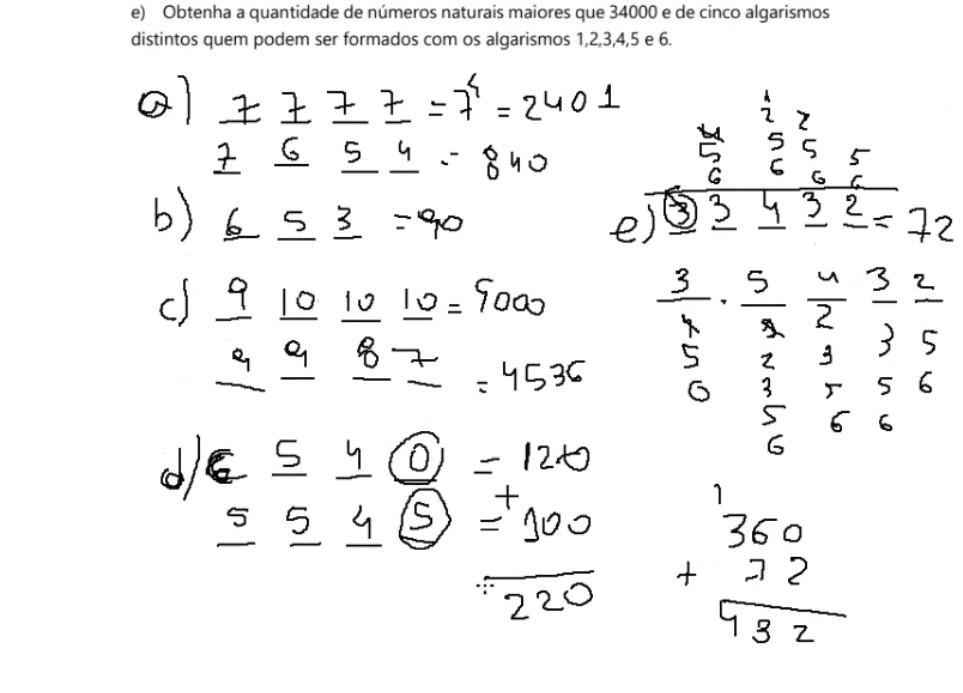 e) Obtenha a quantidade de números naturais maiores que 34000 e de cinco algarismos
distintos quem podem ser formados com os algarismos 1,2,3,4,5 e 6.
a) 7 7 7 7 = 7⁴ = 2401
7 6 5 4 = 840
b) 6 5 3 = 90
c) 9 10 10 10 = 9000
9 9 8 7 = 4536
d) 6 5 4 0 = 120
+
5 5 4 5 = 100
220
1
2 2
4 5 5
5 6 5
6 6 6
e) 3 3 4 3 2 = 72
3 . 5 4 3 2
4 1 2
5 2 3 3 5
6 3 5 5 6
5 6 6
6
1
360
+ 72
432